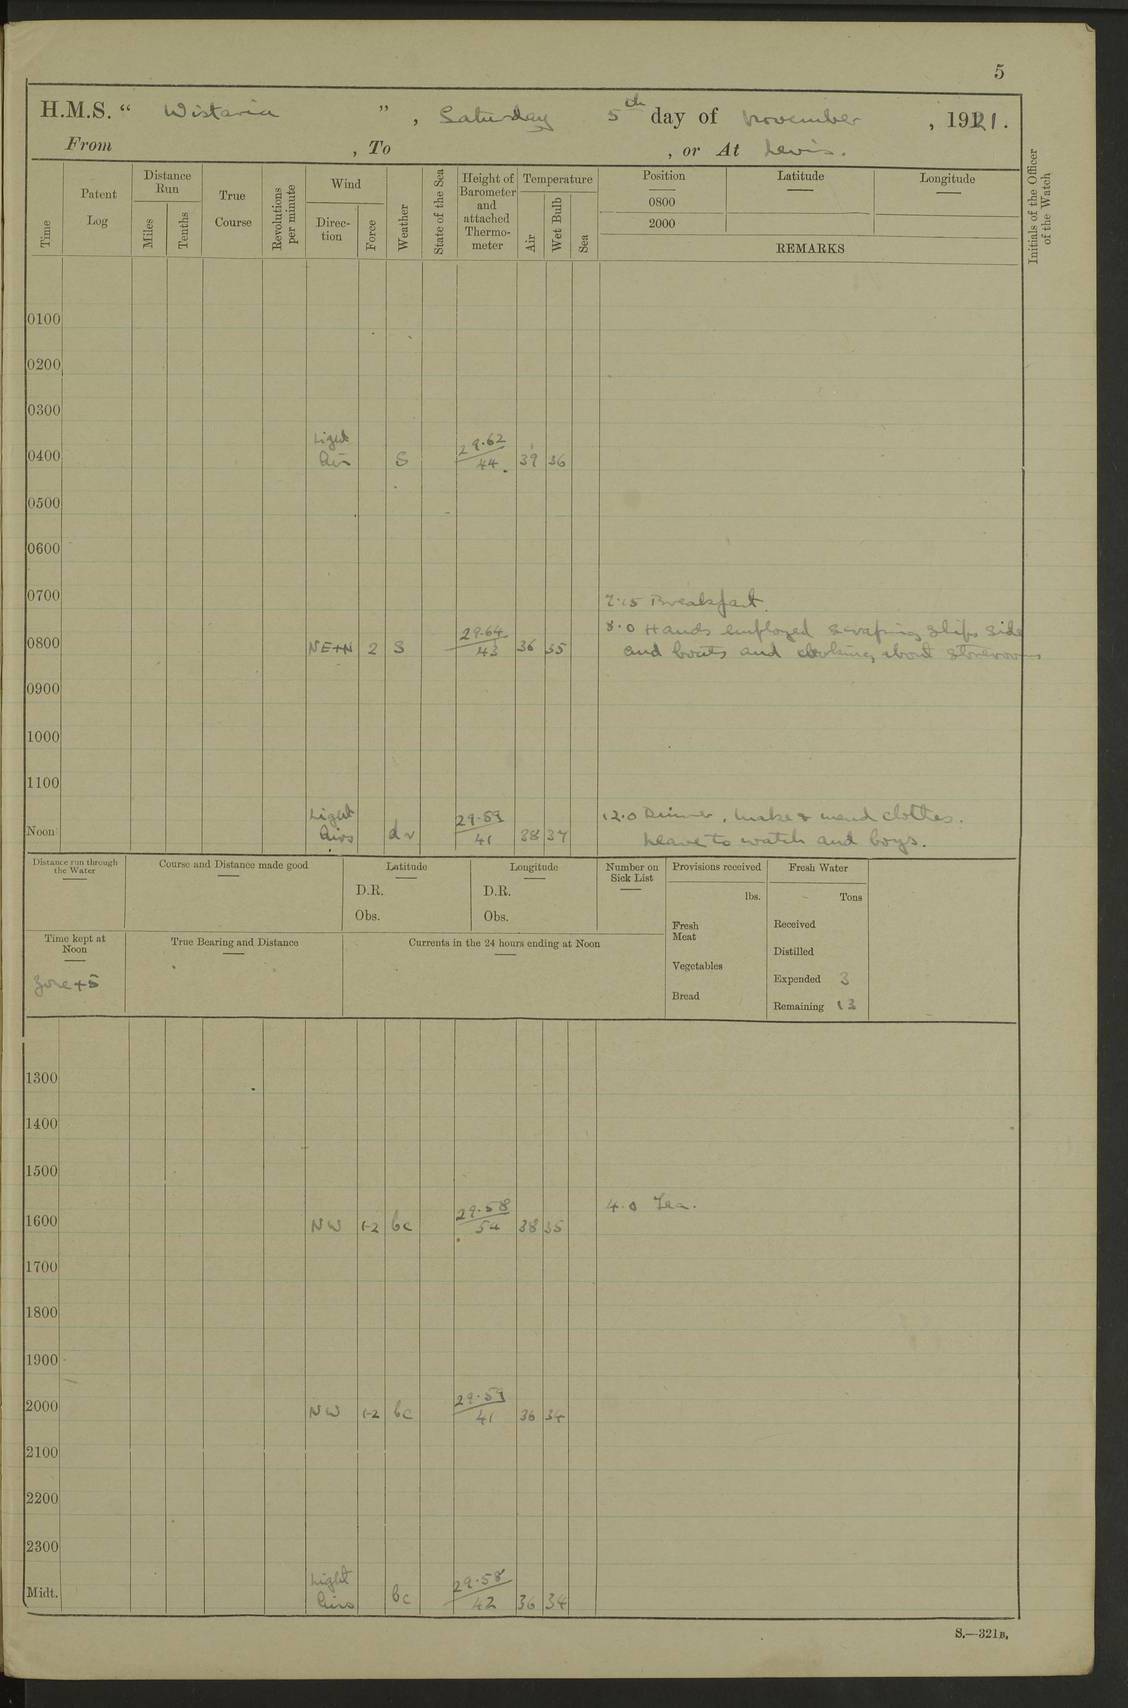 5
H.M.S. “ Wistaria ” , Saturday 5th day of November , 1921.
From , To , or At Levis.
Time
Patent Log
Distance Run
Miles
Tenths
True Course
Revolutions per minute
Wind
Direction
Force
Weather
State of the Sea
Height of Barometer and attached Thermometer
Temperature
Air
Wet Bulb
Sea
Position
0800
2000
Latitude
Longitude
REMARKS
Initials of the Officer of the Watch
0100
0200
0300
0400 Light Air S 29.62 44 39 36
0500
0600
0700
7.15 Breakfast.
8.0 Hands employed scraping ships side
0800 NE+N 2 S 29.64 43 36 35 and boats and about storerooms
0900
1000
1100
12.0 Dinner, make & mend clothes.
Noon Light Airs 29.59 41 38 37 Leave to watch and boys.
Distance run through the Water
Course and Distance made good
Latitude
D.R.
Obs.
Longitude
D.R.
Obs.
Number on Sick List
Provisions received
lbs.
Fresh Meat
Vegetables
Bread
Fresh Water
Tons
Received
Distilled
Expended 3
Remaining 13
Time kept at Noon
Zone +5
True Bearing and Distance
Currents in the 24 hours ending at Noon
1300
1400
1500
4.0 Tea.
1600 NW 1-2 bc 29.58 54 38 35
1700
1800
1900
2000 NW 1-2 bc 29.59 41 36 34
2100
2200
2300
Midt. Light Airs bc 29.58 42 36 34
S.—321B.